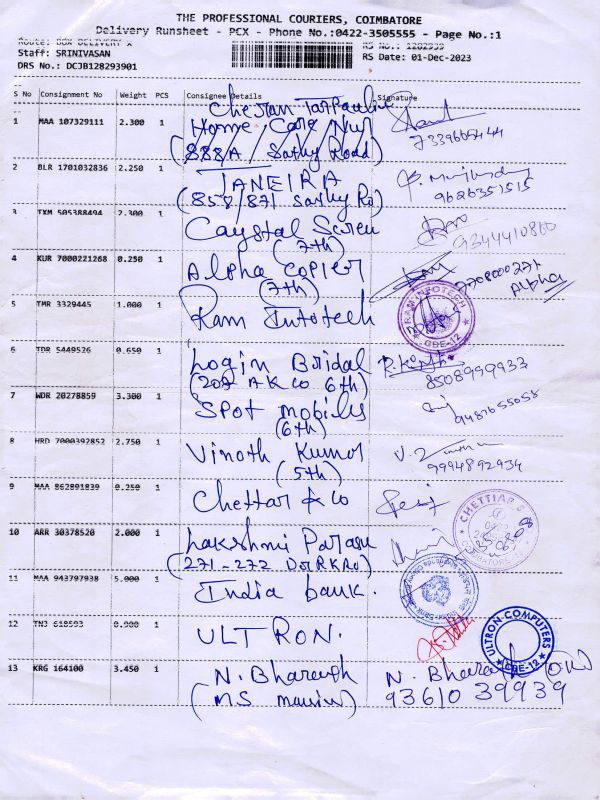 THE PROFESSIONAL COURIERS, COIMBATORE
Delivery Runsheet - PCX - Phone No.:0422-3505555 - Page No.:1
Route: BOX DELIVERY X RS No.: 1282939
Staff: SRINIVASAN RS Date: 01-Dec-2023
DRS No.: DCJB128293901
S No Consignment No Weight PCS Consignee Details Signature
Cheran Tarpaulin
1 MAA 107329111 2.300 1 Home Care Nur
7339605444
(888A/ Sathy Road)
2 BLR 1701032836 2.250 1 JANEIRA
(858/871 Sathy Ro) 9626351515
3 TXM 505388494 2.300 1 Caystal Screu
(7th) 9344410860
4 KUR 7000221268 0.250 1 Alpha Copier
(7th) Alpha
5 TMR 3329445 1.000 1 Ram Infotech
RAM INFOTECH CBE-12
6 TDR 5449526 0.650 1 Login Bridal
(207 A K CO 6th) 8508999933
7 WDR 20278859 3.300 1 Spot mobiles
(6th) 9487655058
8 HRD 7000392852 2.750 1 Vinoth Kumar
(5th) 9994892934
9 MAA 862891839 0.250 1 Chettar & Co
CHETTIAR
10 ARR 30378520 2.000 1 Lakshmi Parasu
(271-272 Dr RK Ro)
11 MAA 943797938 5.000 1 India bank.
12 TNJ 618593 0.900 1 ULTRON.
ULTRON-COMPUTERS CBE-12
13 KRG 164100 3.450 1 N. Bharath N. Bharath
(M.S 93610 39939